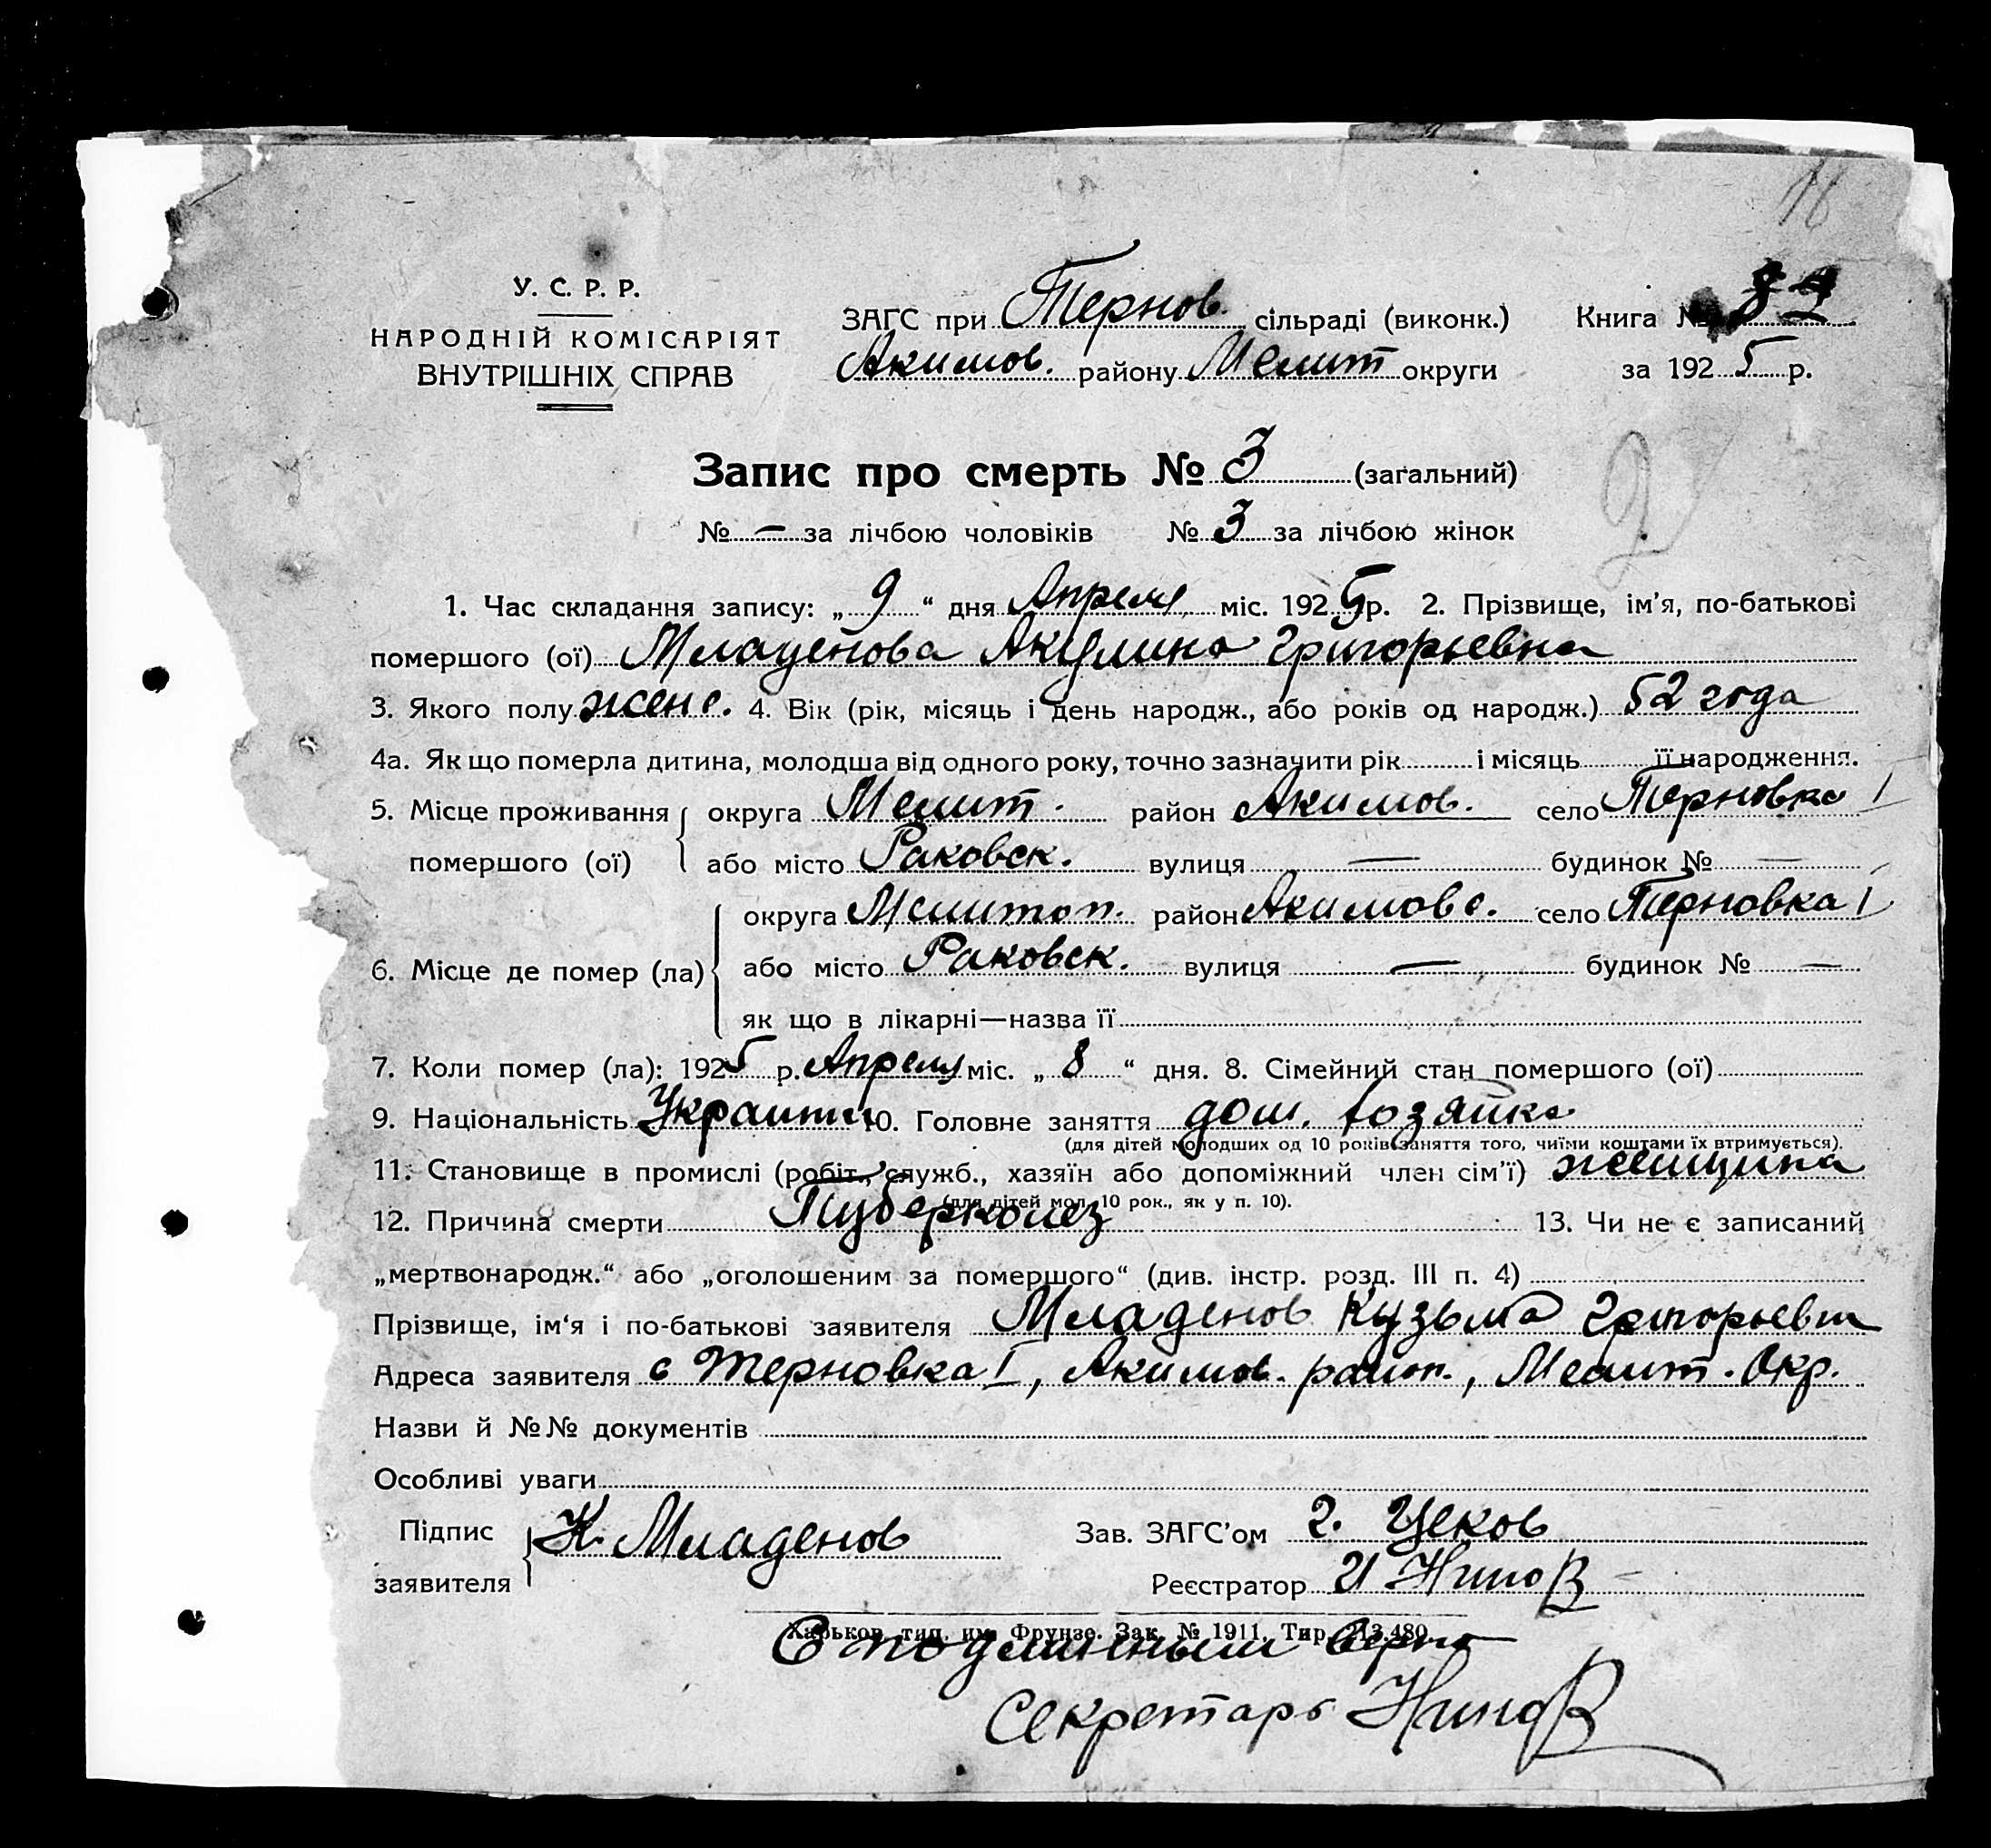 У. С. Р. Р.
НАРОДНІЙ КОМІСАРІЯТ
ВНУТРІШНІХ СПРАВ
ЗАГС при Тернов. сільраді (виконк.)
Акимов. району Мелит округи
Книга №
за 1925 р.
Запис про смерть № 3 (загальний)
№ — за лічбою чоловіків № 3 за лічбою жінок
1. Час складання запису: „9“ дня Апреля міс. 1925 р. 2. Прізвище, ім'я, по-батькові
помершого (ої) Младенова Акулина Григорьевна
3. Якого полу женс. 4. Вік (рік, місяць і день народж., або років од народж.) 52 года
4а. Як що померла дитина, молодша від одного року, точно зазначити рік і місяць її народження.
5. Місце проживання помершого (ої) округа Мелит. район Акимов. село Терновка I
або місто Раковск. вулиця — будинок № —
6. Місце де помер (ла) округа Мелитоп. район Акимовс. село Терновка I
або місто Раковск. вулиця — будинок № —
як що в лікарні—назва її
7. Коли помер (ла): 1925 р. Апреля міс. „8“ дня. 8. Сімейний стан помершого (ої)
9. Національність 10. Головне заняття дом. хозяйка
(для дітей молодших од 10 років заняття того, чиїми коштами їх втримується).
11. Становище в промислі (робіт., служб., хазяїн або допоміжний член сім'ї) женщина
(для дітей мол. 10 рок., як у п. 10).
12. Причина смерти Туберколез 13. Чи не є записаний
„мертвонародж.“ або „оголошеним за помершого“ (див. інстр. розд. III п. 4)
Прізвище, ім'я і по-батькові заявителя Младенов Кузьма Григорьевич
Адреса заявителя с Терновка I, Акимов. район., Мелит. Окр.
Назви й №№ документів
Особливі уваги
Підпис заявителя К. Младенов
Зав. ЗАГС'ом Г. Цеков
Реєстратор И Нинов
Харьков, тип. им. Фрунзе. Зак. № 1911. Тир. 213.480
С подлинным верно
Секретарь Нинов